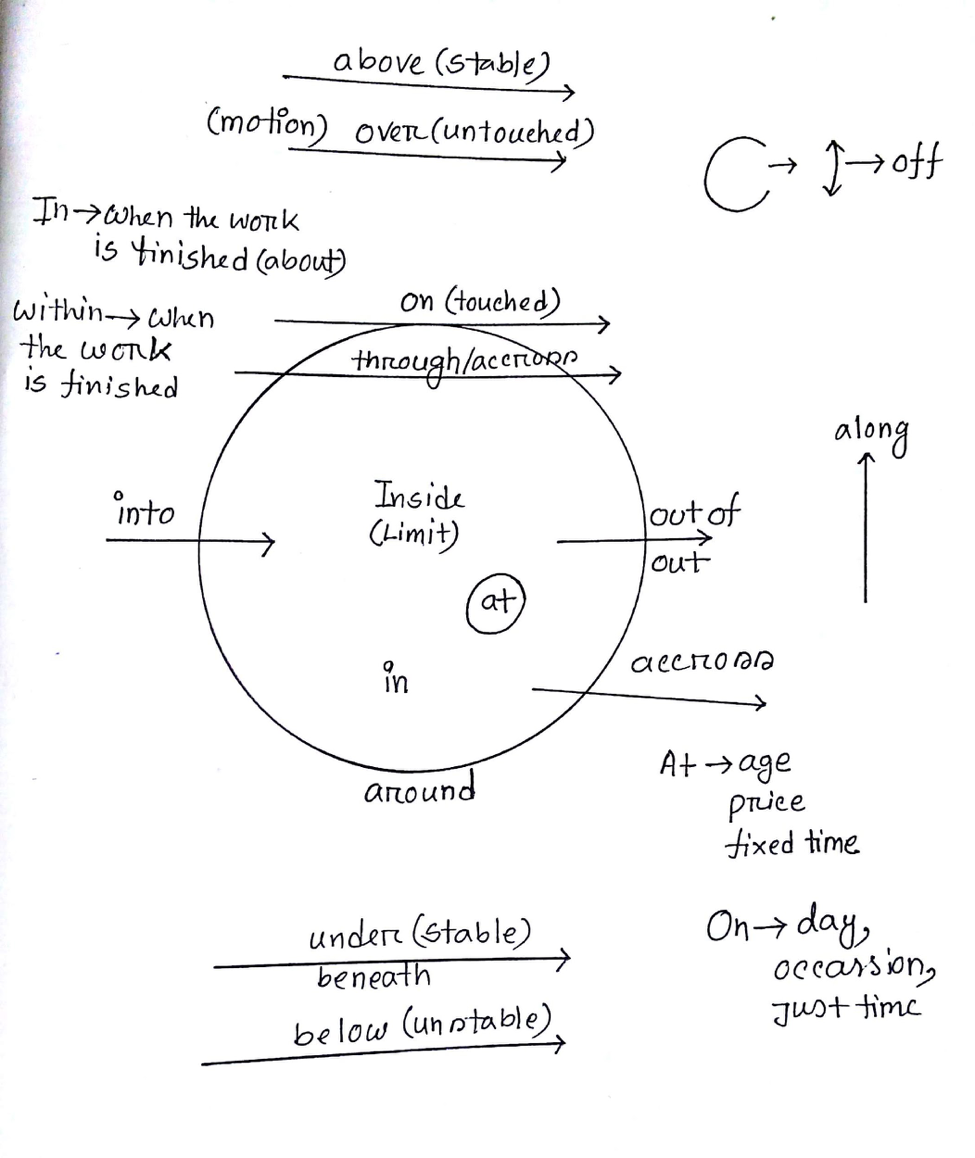 above (stable)
(motion) over (untouched)
→ ↕ → off
In → When the work
is finished (about)
within → when
the work
is finished
on (touched)
through/accross
along
into
Inside
(Limit)
out of
out
at
in
accross
around
At → age
price
fixed time
under (stable)
beneath
below (unstable)
On → day,
occassion,
Just time